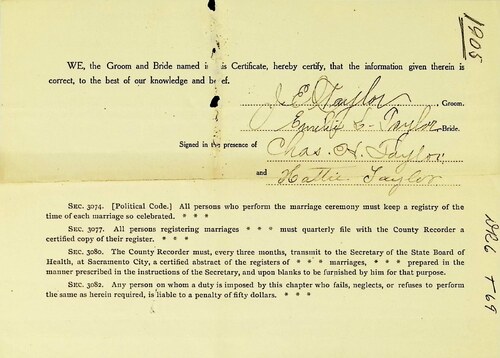 1905
WE, the Groom and Bride named in this Certificate, hereby certify, that the information given therein is
correct, to the best of our knowledge and belief.
J. E. Taylor, Groom.
Emilie L. Taylor, Bride.
Signed in the presence of Chas. H. Taylor
and Hattie Taylor
SEC. 3074. [Political Code.] All persons who perform the marriage ceremony must keep a registry of the
time of each marriage so celebrated. * * *
SEC. 3077. All persons registering marriages * * * must quarterly file with the County Recorder a
certified copy of their register. * * *
SEC. 3080. The County Recorder must, every three months, transmit to the Secretary of the State Board of
Health, at Sacramento City, a certified abstract of the registers of * * * marriages, * * * prepared in the
manner prescribed in the instructions of the Secretary, and upon blanks to be furnished by him for that purpose.
SEC. 3082. Any person on whom a duty is imposed by this chapter who fails, neglects, or refuses to perform
the same as herein required, is liable to a penalty of fifty dollars. * * *
T-69